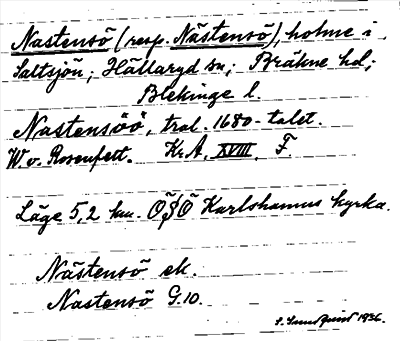 Nastensö (resp. Nästensö), holme i
Saltsjön; Hällaryd sn; Bräkne hd;
Blekinge l.
Nastensöö, tral. 1680-talet.
W. v. Rosenfelt. Kr A, XVIII, F.
Läge 5,2 km. OSO Karlshamns kyrka.
Nästensö ek.
Nastensö G.10.
S. Sundquist 1936.